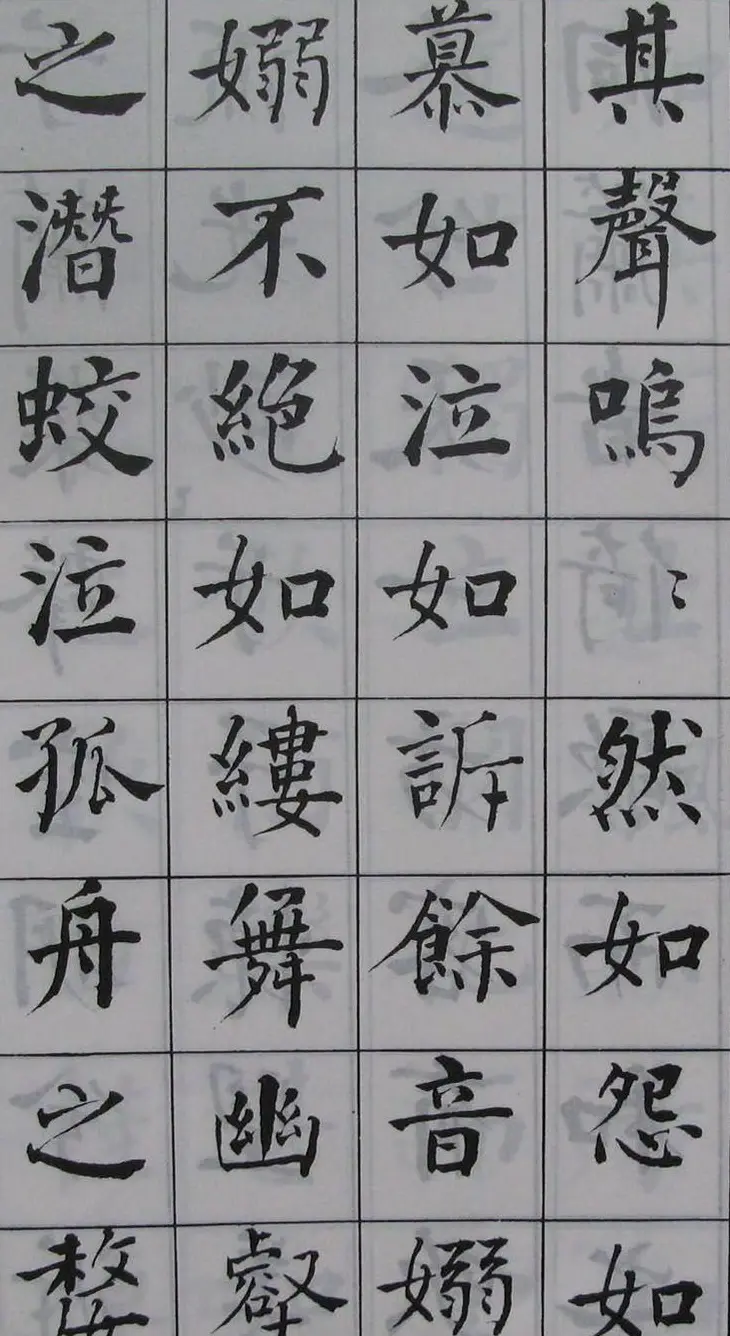 其聲嗚〻然如怨如
慕如泣如訴餘音嫋
嫋不絕如縷舞幽壑
之潛蛟泣孤舟之嫠